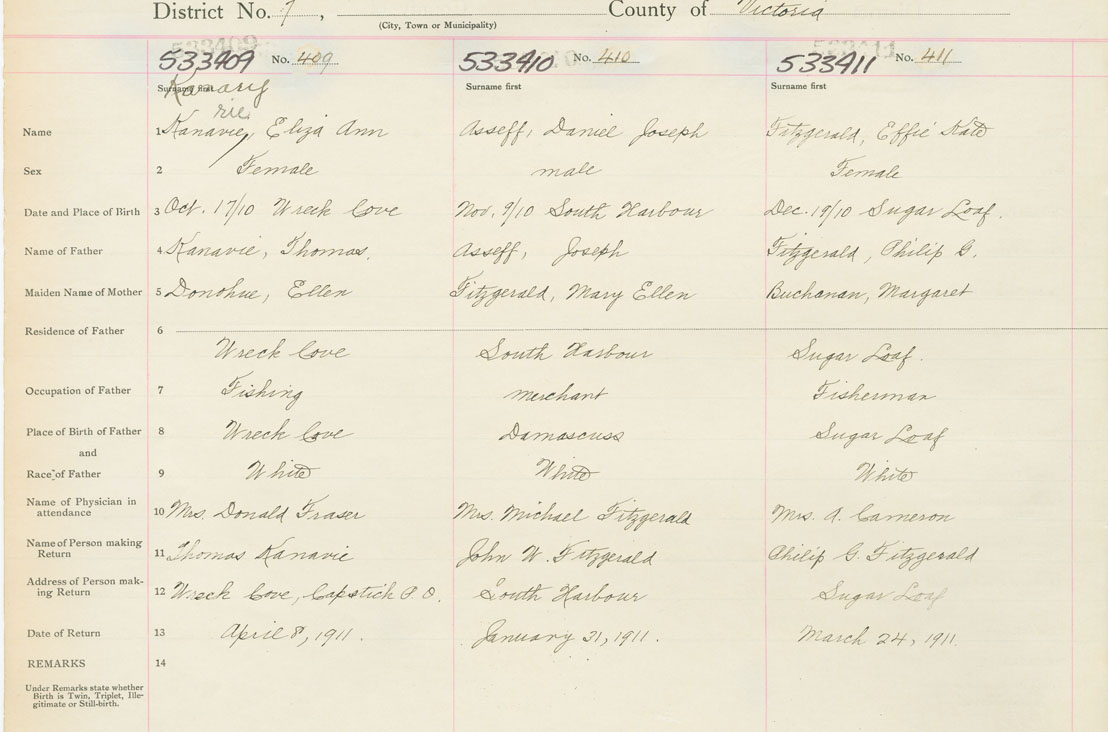 District No. 7, County of Victoria
(City, Town or Municipality)
533409 No. 409 533410 No. 410 533411 No. 411
Surname first Surname first Surname first
rie
Name 1 Kanavie, Eliza Ann Asseff, Daniel Joseph Fitzgerald, Effie Kate
Sex 2 Female male Female
Date and Place of Birth 3 Oct. 17/10 Wreck Cove Nov. 9/10 South Harbour Dec. 19/10 Sugar Loaf.
Name of Father 4 Kanavie, Thomas. Asseff, Joseph Fitzgerald, Philip G.
Maiden Name of Mother 5 Donohue, Ellen Fitzgerald, Mary Ellen Buchanan, Margaret
Residence of Father 6
Wreck Cove South Harbour Sugar Loaf.
Occupation of Father 7 Fishing merchant Fisherman
Place of Birth of Father 8 Wreck Cove Damascuss Sugar Loaf
and
Race of Father 9 White White White
Name of Physician in
attendance 10 Mrs. Donald Fraser Mrs. Michael Fitzgerald Mrs. A. Cameron
Name of Person making
Return 11 Thomas Kanavie John W. Fitzgerald Philip G. Fitzgerald
Address of Person mak-
ing Return 12 Wreck Cove, Capstick P.O. South Harbour Sugar Loaf
Date of Return 13 April 8, 1911. January 31, 1911. March 24, 1911.
REMARKS 14
Under Remarks state whether
Birth is Twin, Triplet, Ille-
gitimate or Still-birth.